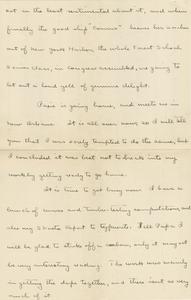 not in the least sentimental about it, and when
finally the good ship "Comus" leaves her anchor
out of New York Harbor, the whole Forest School
Senior class, in congress assembled, are going to
let out a loud yell of genuine delight.
Peasie is going home, and meets us in
New Orleans. It is all over now, so I will tell
you that I was sorely tempted to do the same, but
I concluded it was best not to break into my
work by getting ready to go home.
It is time to get busy now. I have a
bunch of curves and Timber-testing computations, and
also my Senate report to typewrite. Tell Papa I
will be glad to strike off a carbon, only it may not
be very interesting reading. The work was mainly
in getting the dope together, and there isn't so very
much of it.